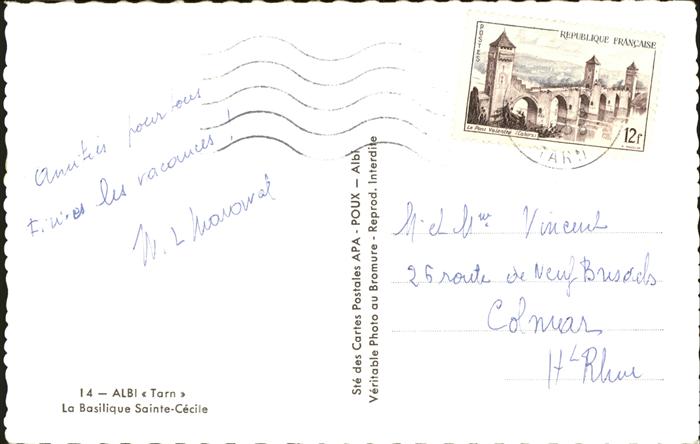 Amitiés pour tous
Finies les vacances !
M. L Maraval
14 — ALBI « Tarn »
La Basilique Sainte-Cécile
Sté des Cartes Postales APA - POUX — Albi
Véritable Photo au Bromure - Reprod. Interdite
POSTES
REPUBLIQUE FRANÇAISE
Le Pont Valentré (Cahors)
12f
TARN
M et Mme Vincent
26 route de Neuf Brisachs
Colmar
Ht Rhin